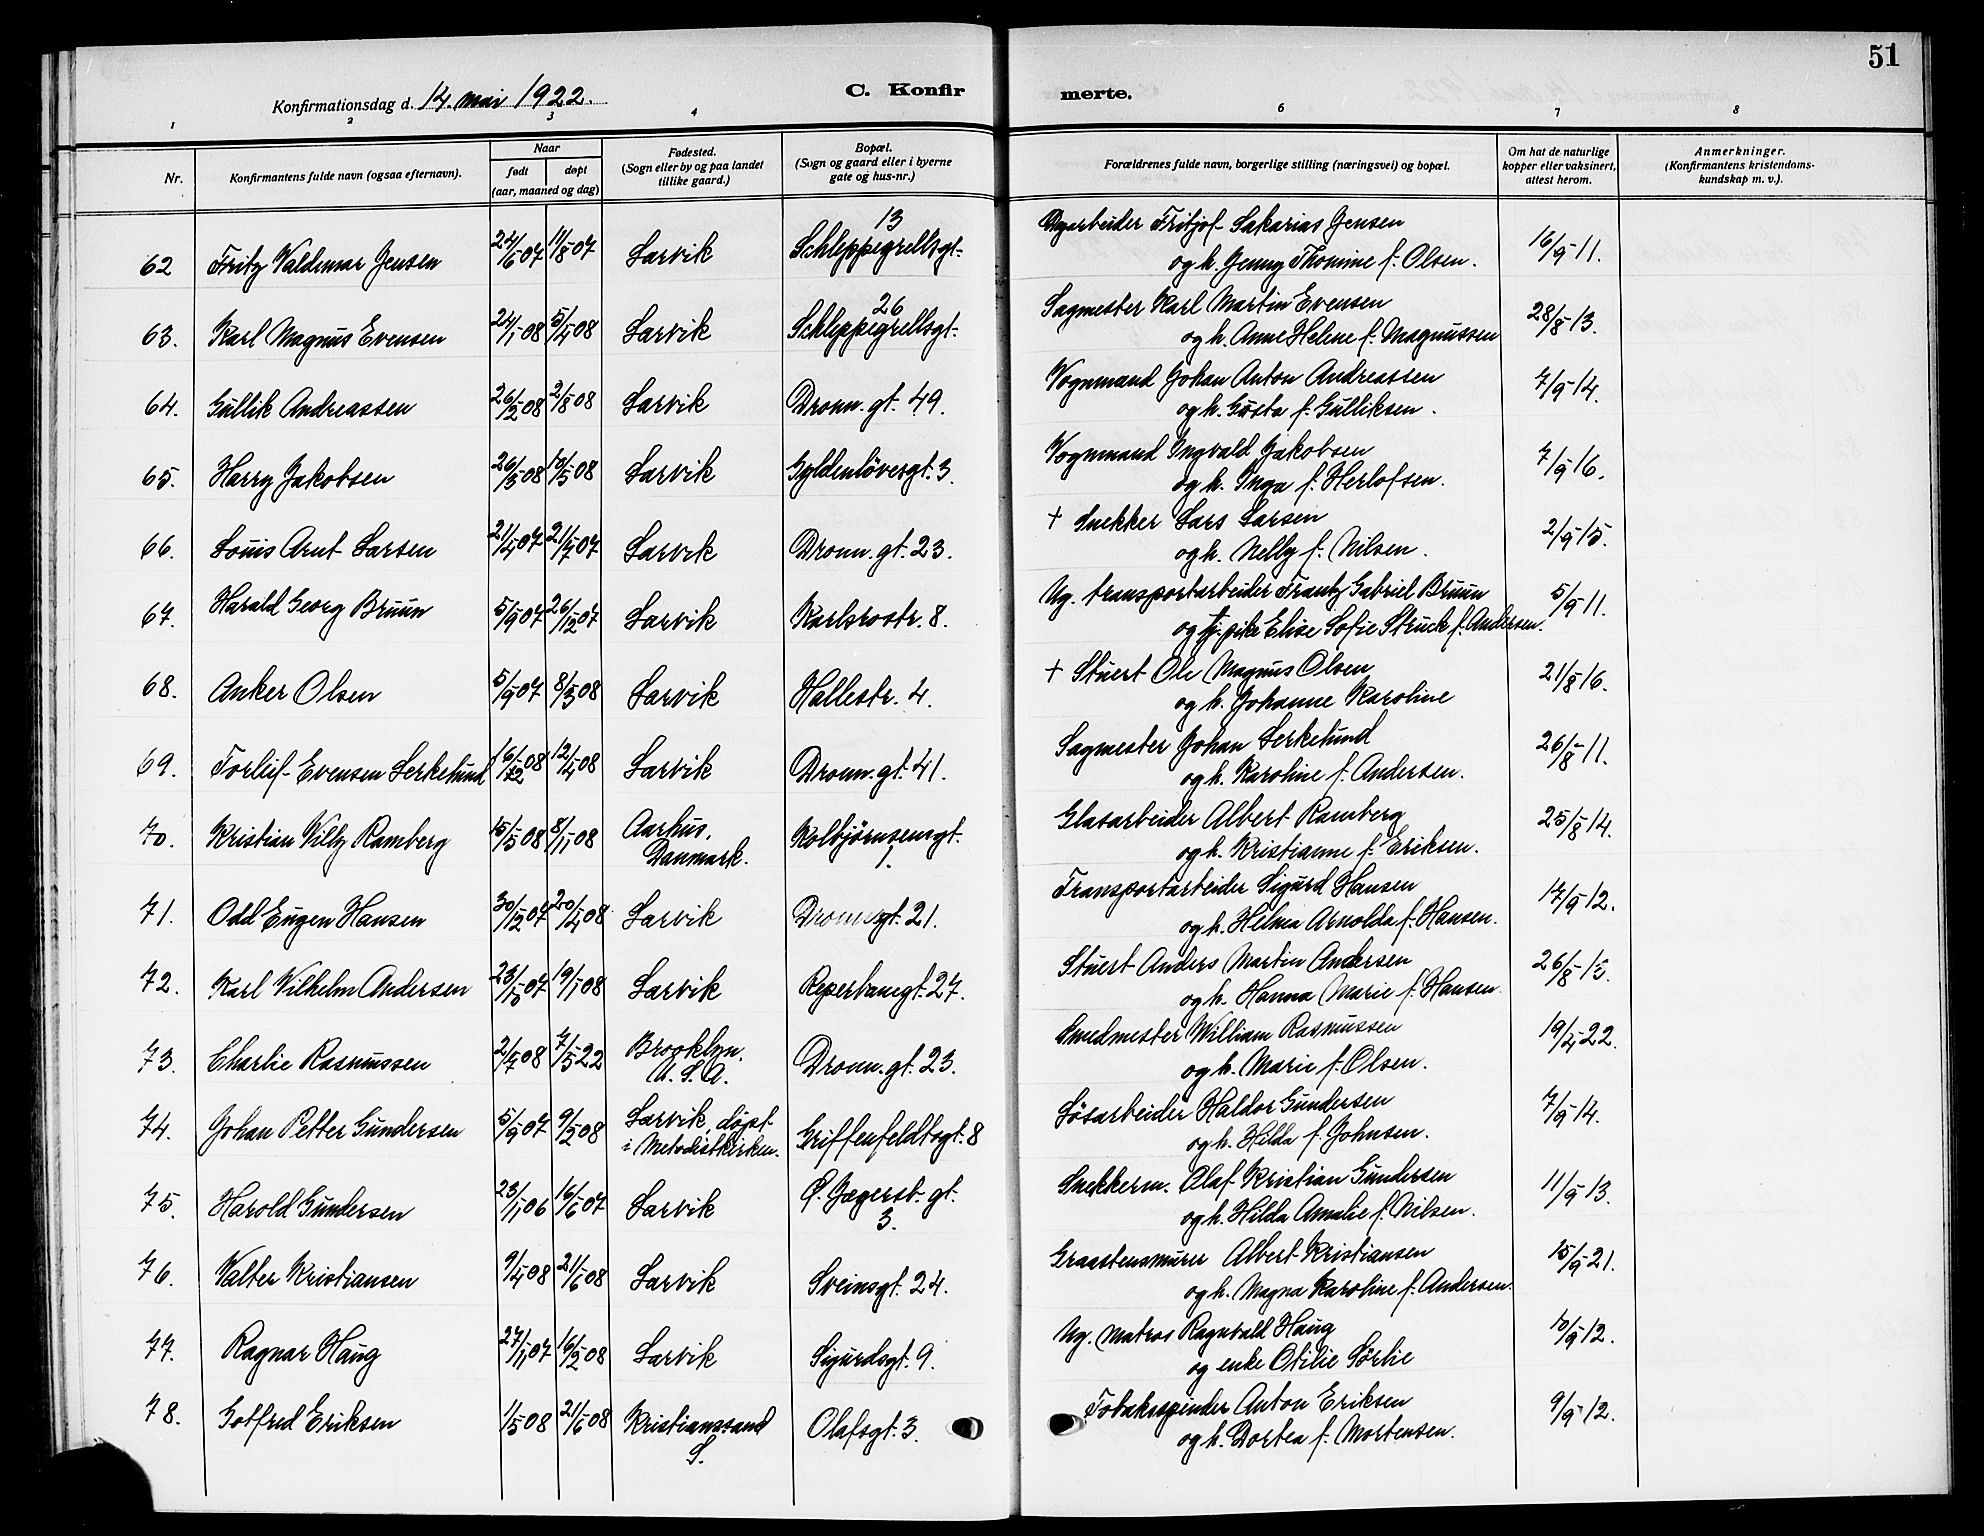 51
Konfirmationsdag d. 14. mai 1922.
C. Konfir merte.
1 2 3 4 6 7 8
Nr.
Konfirmantens fulde navn (ogsaa efternavn).
Naar
født døpt
(aar, maaned og dag)
Fødested.
(Sogn eller by og paa landet
tillike gaard.)
Bopæl.
(Sogn og gaard eller i byerne
gate og hus-nr.)
Forældrenes fulde navn, borgerlige stilling (næringsvei) og bopæl.
Om hat de naturlige
kopper eller vaksinert,
attest herom.
Anmerkninger.
(Konfirmantens kristendoms-
kundskap m. v.).
62 Fritz Valdemar Jensen 24/6 07 11/8 07 Larvik Schleppegrellsgt. 13 Fritjof Sakarias Jensen 16/9-11.
og h. Jenny Thomine f. Olsen.
63. Karl Magnus Evensen 24/1 08 5/4 08 Larvik Schleppegrellsgt. 26 Sagmester Karl Martin Evensen 28/8-13.
og h. Anne Helene f. Magnussen
64. Gullik Andreassen 26/2 08 2/8 08 Larvik Dronn. gt. 49. Vognmand Johan Anton Andreassen 7/9-14.
og h. Gusta f. Gulliksen.
65. Harry Jakobsen 26/3 08 /5 08 Larvik Gyldenløvesgt. 3. Vognmand Ingvald Jakobsen 7/9-16.
og h. Inga f. Herlofsen.
66. Louis Arnt Larsen 21/4 07 21/7 07 Larvik Dronn. gt. 23. † Snekker Lars Larsen 2/9-15.
og h. Nelly f. Nilsen.
67. Harald Georg Bruun 5/9 07 26/12 07 Larvik Karlsrostr. 8. Ug. transportarbeider Frantz Gabriel Bruun 5/9-11.
og tj. pike Elise Sofie Struck f. Andersen.
68. Anker Olsen 5/9 07 8/3 08 Larvik Hallestr. 4. † Stuert Ole Magnus Olsen 21/8-16.
og h. Johanne Karoline
69. Torleif Evensen Lerkelund 16/ 08 12/4 08 Larvik Dronn. gt. 41. Sagmester Johan Lerkelund 26/8-11.
og h. Karoline f. Andersen.
70. Kristian Villy Ramberg 15/5 08 8/11 08 Aarhus, Kolbjørnsensgt. Glasarbeider Albert Ramberg 25/8-14.
Danmark. 1. og h. Kristianne f. Eriksen.
71. Odd Eugen Hansen 30/12 07 20/4 08 Larvik Dronn. gt. 21. Transportarbeider Sigurd Hansen 17/9-12.
og h. Helma Arnolda f. Hansen.
72. Karl Vilhelm Andersen 23/10 07 19/1 08 Larvik Reperbanegt. 27. Stuert Anders Martin Andersen 26/8-15.
og h. Hanna Marie f. Hansen.
73. Charlie Rasmussen 2/7 08 7/5 22 Brooklyn. Dronn. gt. 23. Smedmester William Rasmussen 19/4-22.
U. S. A. og h. Marie f. Olsen.
74. Johan Petter Gundersen 5/9 07 9/2 08 Larvik, døpt Griffenfeldtsgt. 8 Løsarbeider Haldor Gundersen 7/9-14.
i Metodistkirken. og h. Hilda f. Johnsen.
75. Harold Gundersen 23/11 06 16/6 07 Larvik P. Jægersb. gt. Snekkerm. Olaf Kristian Gundersen 11/9-13.
3. og h. Hilda Amalie f. Nilsen.
76. Valter Kristiansen 9/4 08 21/6 08 Larvik Sveinsgt. 24. Graastensmurer Albert Kristiansen 15/9-21.
og h. Magna Karoline f. Andersen.
77. Ragnar Haug 27/11 07 16/2 08 Larvik Sigurdsgt. 9. Ug. Matros Ragnvald Haug 10/9-12.
og enke Otilie Sørlie
78. Gotfred Eriksen 1/5 08 21/6 08 Kristianssand Olafsgt. 3. Tobakspinder Anton Eriksen 9/9-12.
S. og h. Dortea f. Mortensen.